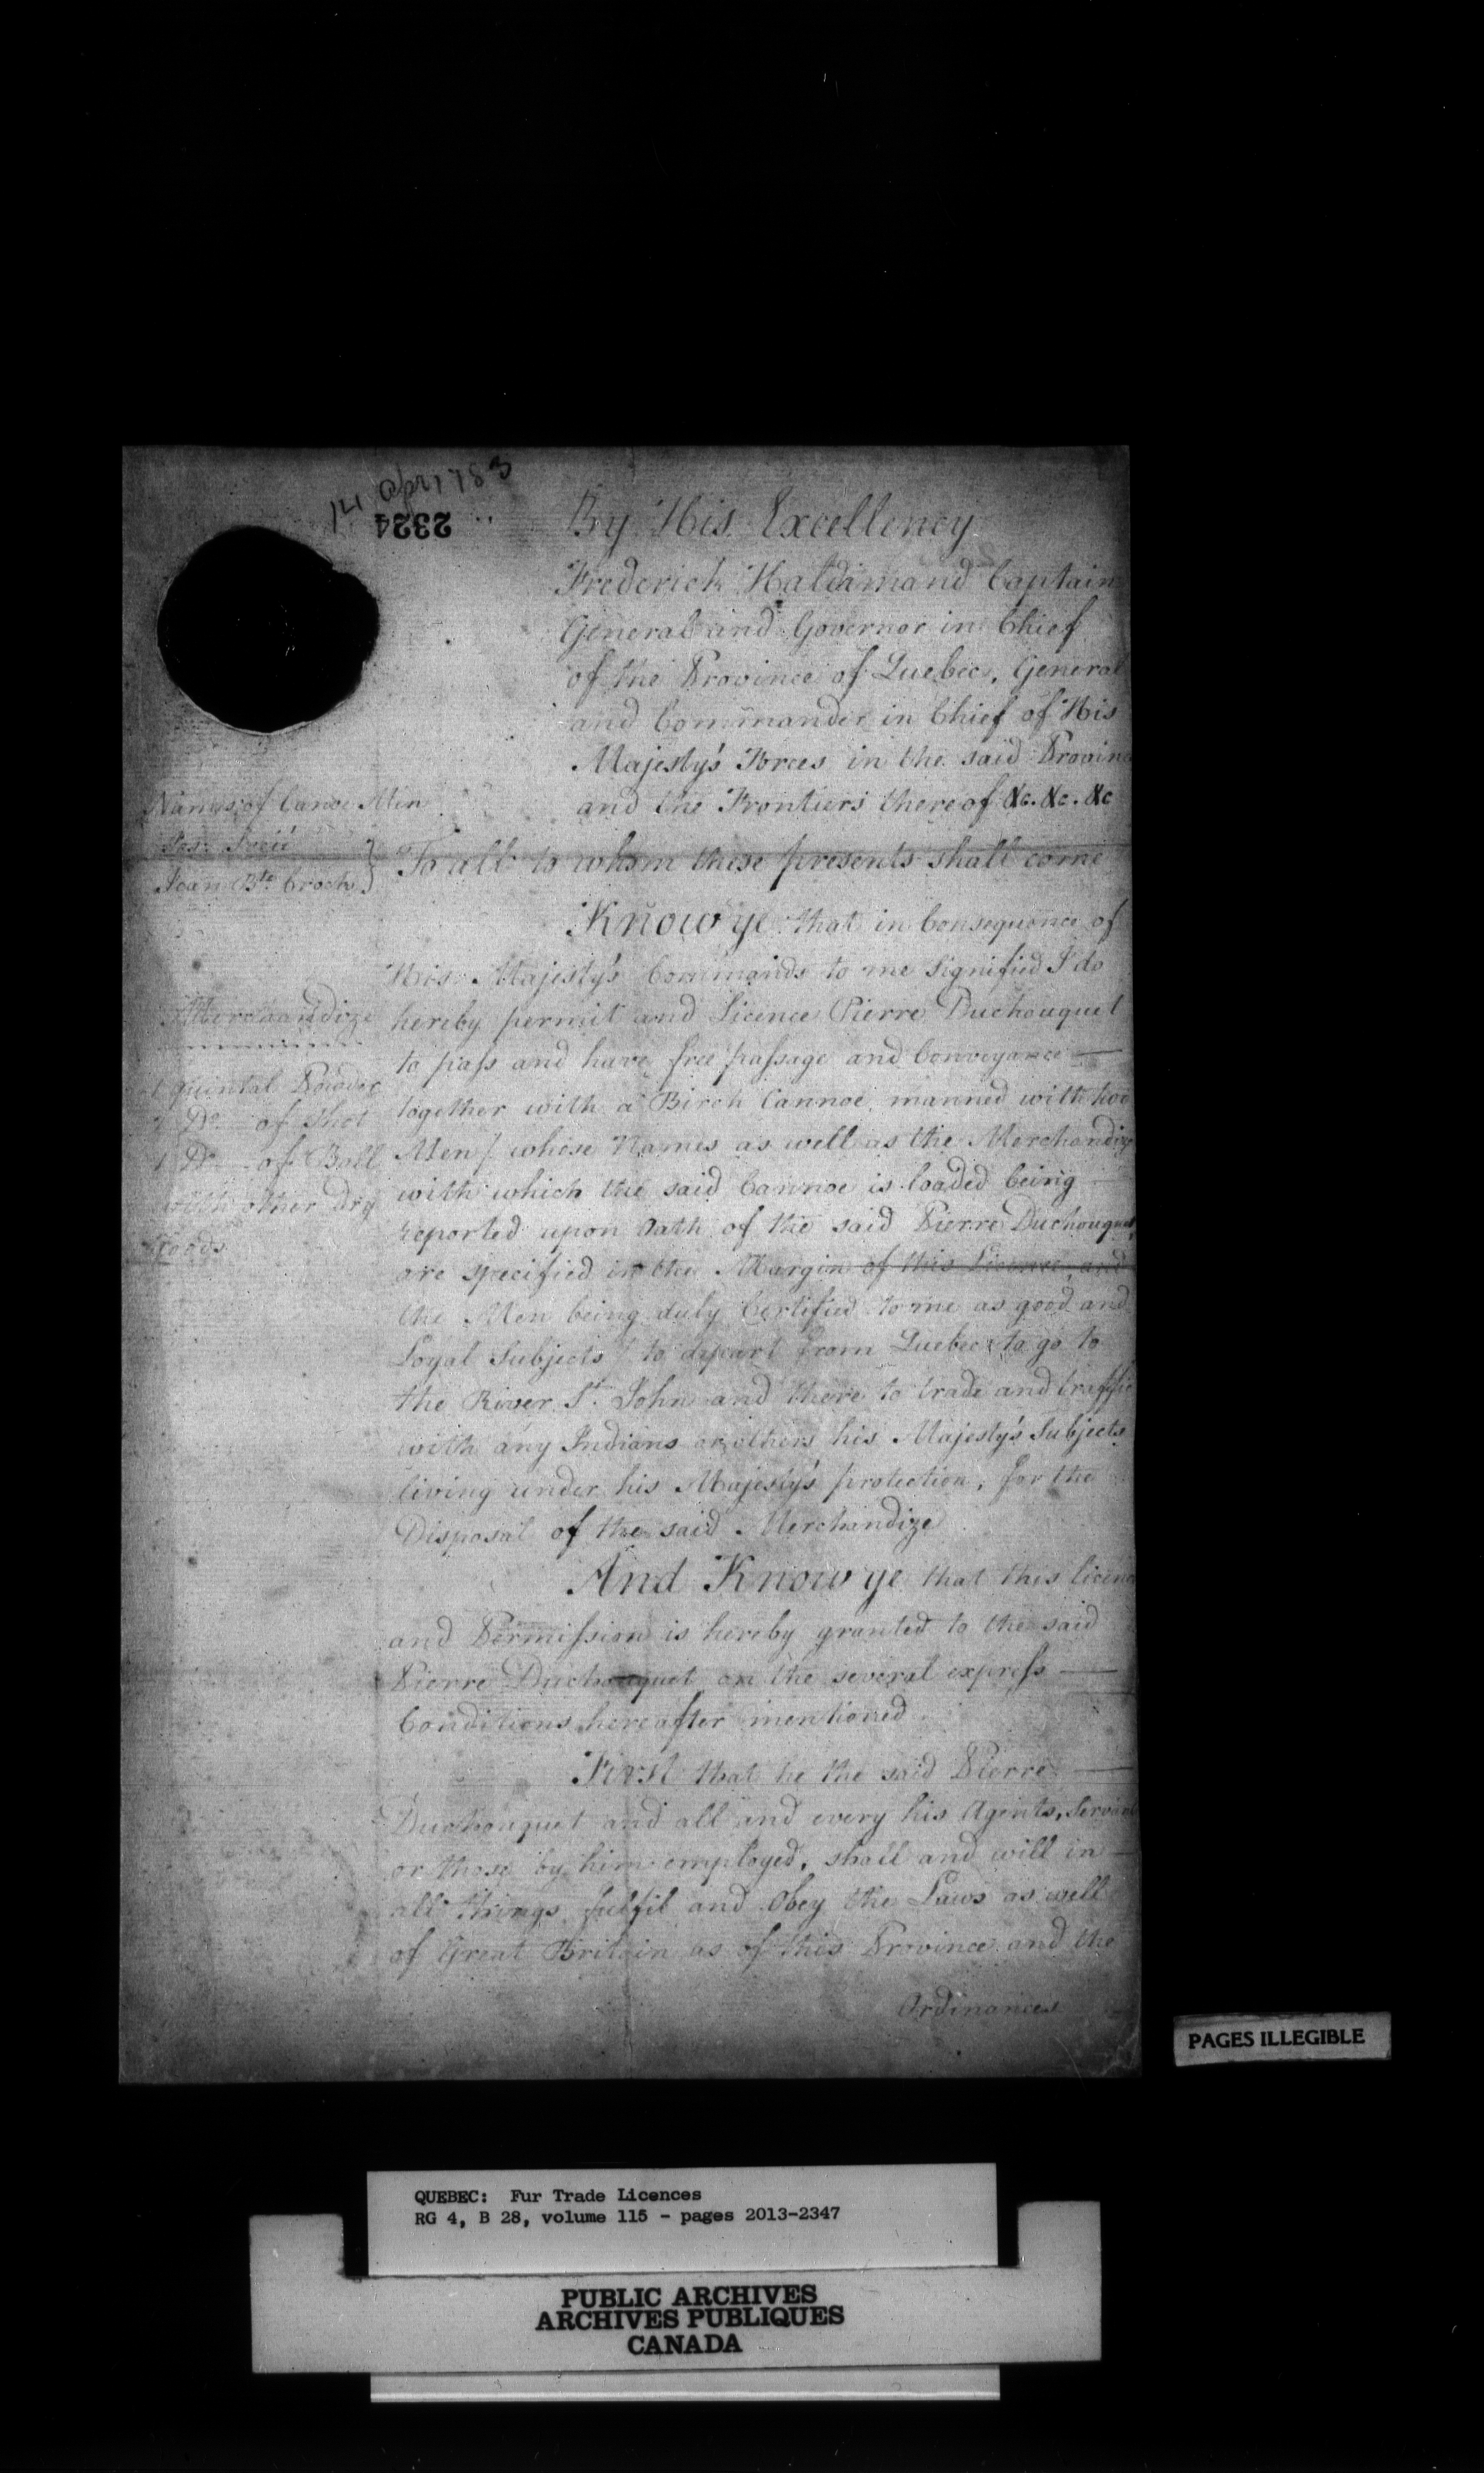 14 Apr 1783
2324
By His Excellency
Frederick Haldimand Captain
General and Governor in Chief
of the Province of Quebec, General
and Commander in Chief of His
Majesty's Forces in the said Provinc
and the Frontiers thereof &c. &c. &c
Names of Canoe Men
Jos:
Jean Bte Croch
To all to whom these presents shall come
Know ye that in Consequence of
His Majesty's Commands to me Signified I do
hereby permit and Licence Pierre Duchouquet
to pass and have free passage and Conveyance
together with a Birch Cannoe manned with two
Men / whose Names as well as the Merchandize
with which the said Cannoe is loaded being
reported upon Oath of the said Pierre Duchouquet,
are specified in the Margin of this Licence, and
the Men being duly Certified to me as good and
Loyal Subjects / to depart from Quebec to go to
the River St. John and there to trade and traffic
with any Indians or others his Majesty's Subjects
living under his Majesty's protection, for the
Disposal of the said Merchandize
Merchandize
1 quintal Powder
Do. of Shot
1 Do. of Ball
with other Dry
Goods
And Know ye that this licence
and Permission is hereby granted to the said
Pierre Duchouquet on the several express
Conditions hereafter mentioned.
First that he the said Pierre
Duchouquet and all and every his Agents, Servants
or those by him employed, shall and will in
all things fulfil and Obey the Laws as well
of Great Britain as of this Province and the
Ordinances
PAGES ILLEGIBLE
QUEBEC: Fur Trade Licences
RG 4, B 28, volume 115 - pages 2013-2347
PUBLIC ARCHIVES
ARCHIVES PUBLIQUES
CANADA